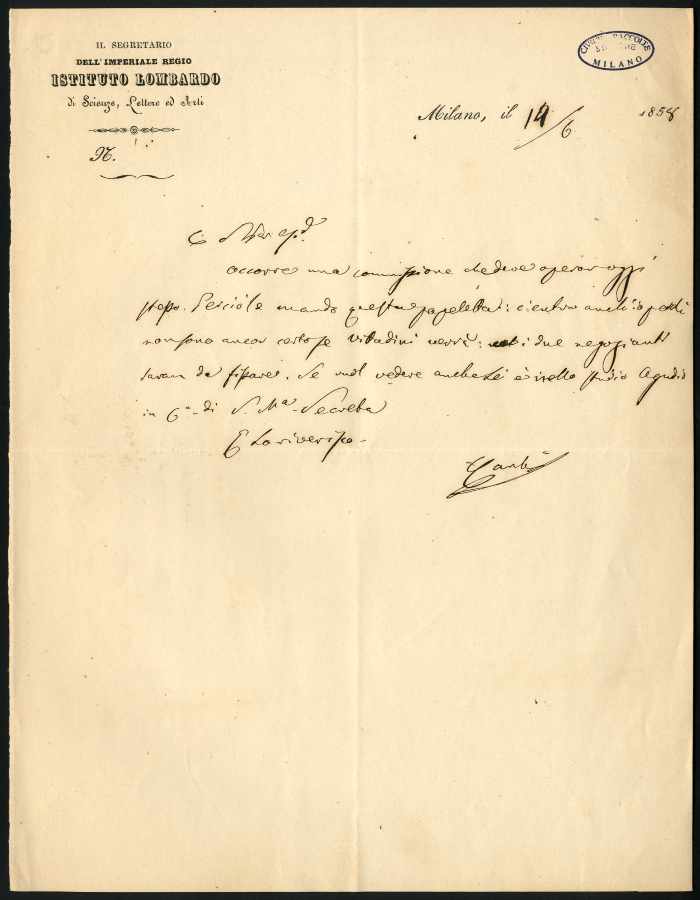 IL SEGRETARIO
DELL'IMPERIALE REGIO
ISTITUTO LOMBARDO
di Scienze, Lettere ed Arti
N.
CIVICHE RACCOLTE
MILANO
Milano, il 14/6 1858
occorre una commissione che deve operar oggi
stesso. Perciò le mando queste
non sono ancor certo se Vitadini verrà: i due negozianti
saran da fissare. Se vuol vedere anche Lei è nello studio Agudio
in Cª di S. Mª Segreta
E La riverisco.
Cantù